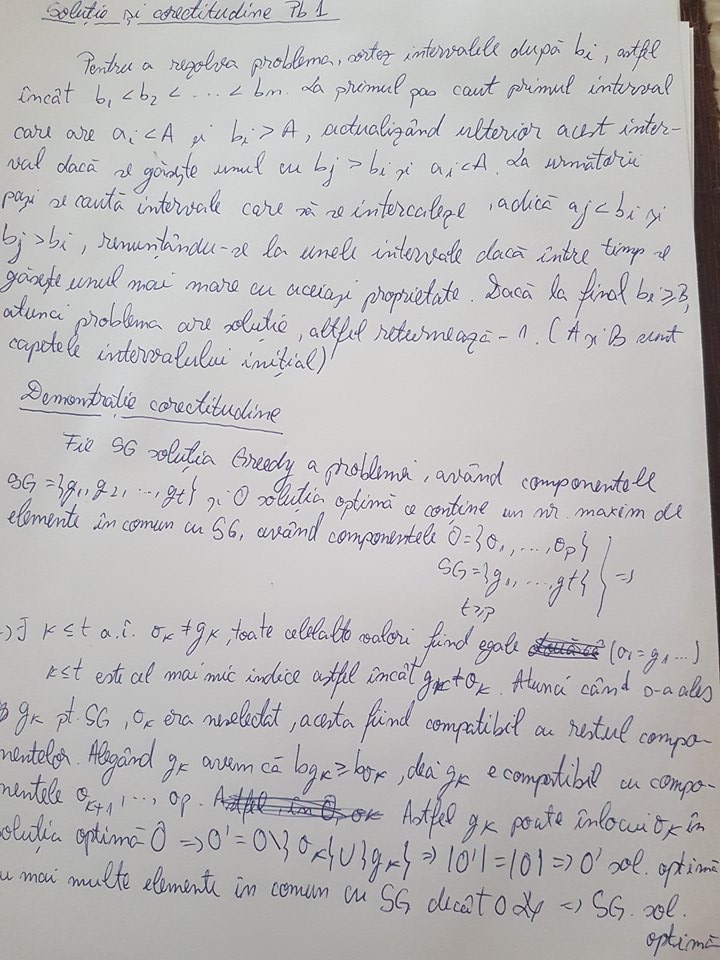 Soluție și corectitudine Pb 1
Pentru a rezolva problema, sortez intervalele după bi, astfel
încât b1 < b2 < ... < bn. La primul pas caut primul interval
care are ai < A și bi > A, actualizând ulterior acest inter-
val dacă se găsește unul cu bj > bi și ai < A. La următorii
pași se caută intervale care să se intercaleze, adică aj < bi și
bj > bi, renunțându-se la unele intervale dacă între timp se
găsește unul mai mare cu aceiași proprietate. Dacă la final bi ≥ B,
atunci problema are soluție, altfel returnează -1. (A și B sunt
capetele intervalului inițial)
Demonstrație corectitudine
Fie SG soluția Greedy a problemei, având componentele
SG = {g1, g2, ..., gt} și O soluția optimă ce conține un nr. maxim de
elemente în comun cu SG, având componentele O = {o1, ..., op}
SG = {g1, ..., gt} } =>
t ≥ p
=> ∃ k ≤ t a.î. ok ≠ gk, toate celelalte valori fiind egale (o1 = g1 ...)
k ≤ t este cel mai mic indice astfel încât gk ≠ ok. Atunci când s-a ales
gk pt. SG, ok era neselectat, acesta fiind compatibil cu restul compo-
nentelor. Alegând gk avem că bgk ≥ bok, deci gk e compatibil cu compo-
nentele ok+1, ..., op. Astfel gk poate înlocui ok în
soluția optimă O => O' = O \ {ok} ∪ {gk} => |O'| = |O| => O' sol. optimă
cu mai multe elemente în comun cu SG decât O => SG sol.
optimă